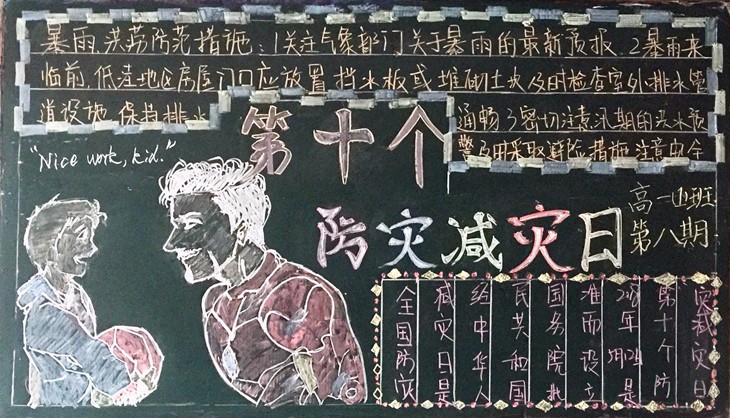 暴雨、洪涝防范措施:1关注气象部门关于暴雨的最新预报、2暴雨来
临前,低洼地区房屋门口应放置挡水板或堆砌土块及时检查室外排水管
道设施,保持排水
通畅3密切注意汛期的洪水预
警及时采取避险措施注意安全
"Nice work, kid."
第十个
防灾减灾日
高一班
第八期
灾减灾日
第十个防
年月是
准而设立
国务院批
民共和国
经中华人
减灾日是
全国防灾